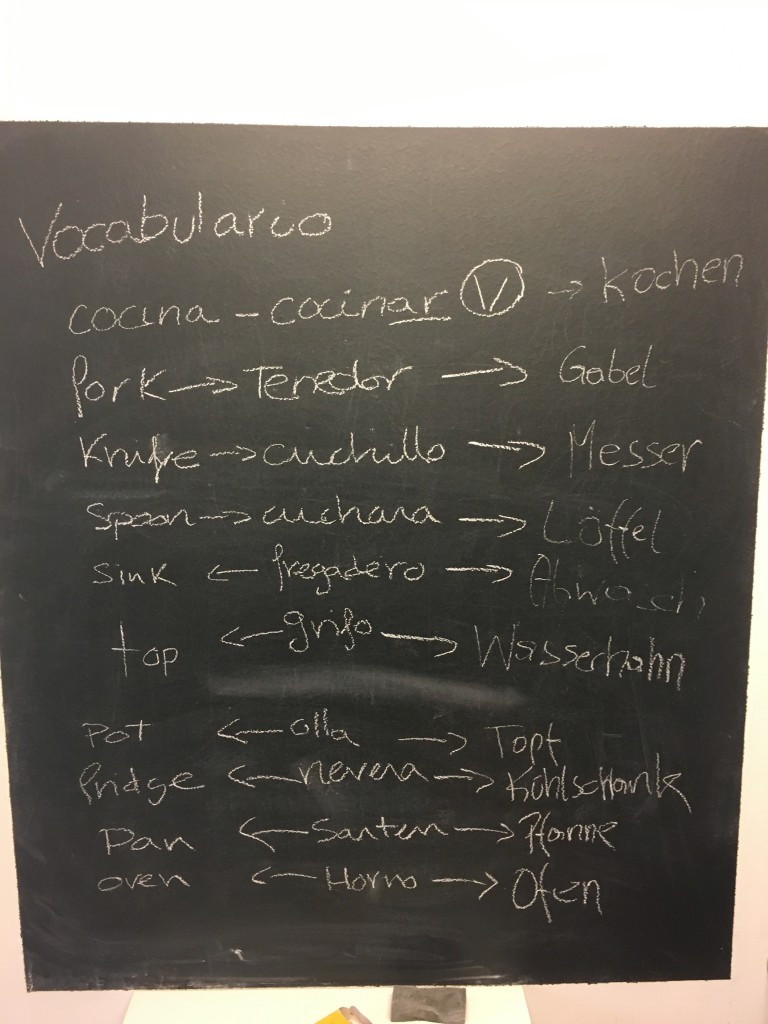 Vocabulario
cocina - cocinar V → Kochen
fork → Tenedor → Gabel
Knife → cuchillo → Messer
Spoon → cuchara → Löffel
Sink ← fregadero → Abwasch
top ← grifo → Wasserhahn
POT ← olla → Topf
fridge ← nevera → Kühlschrank
Pan ← Sarten → Pfanne
oven ← Horno → Ofen